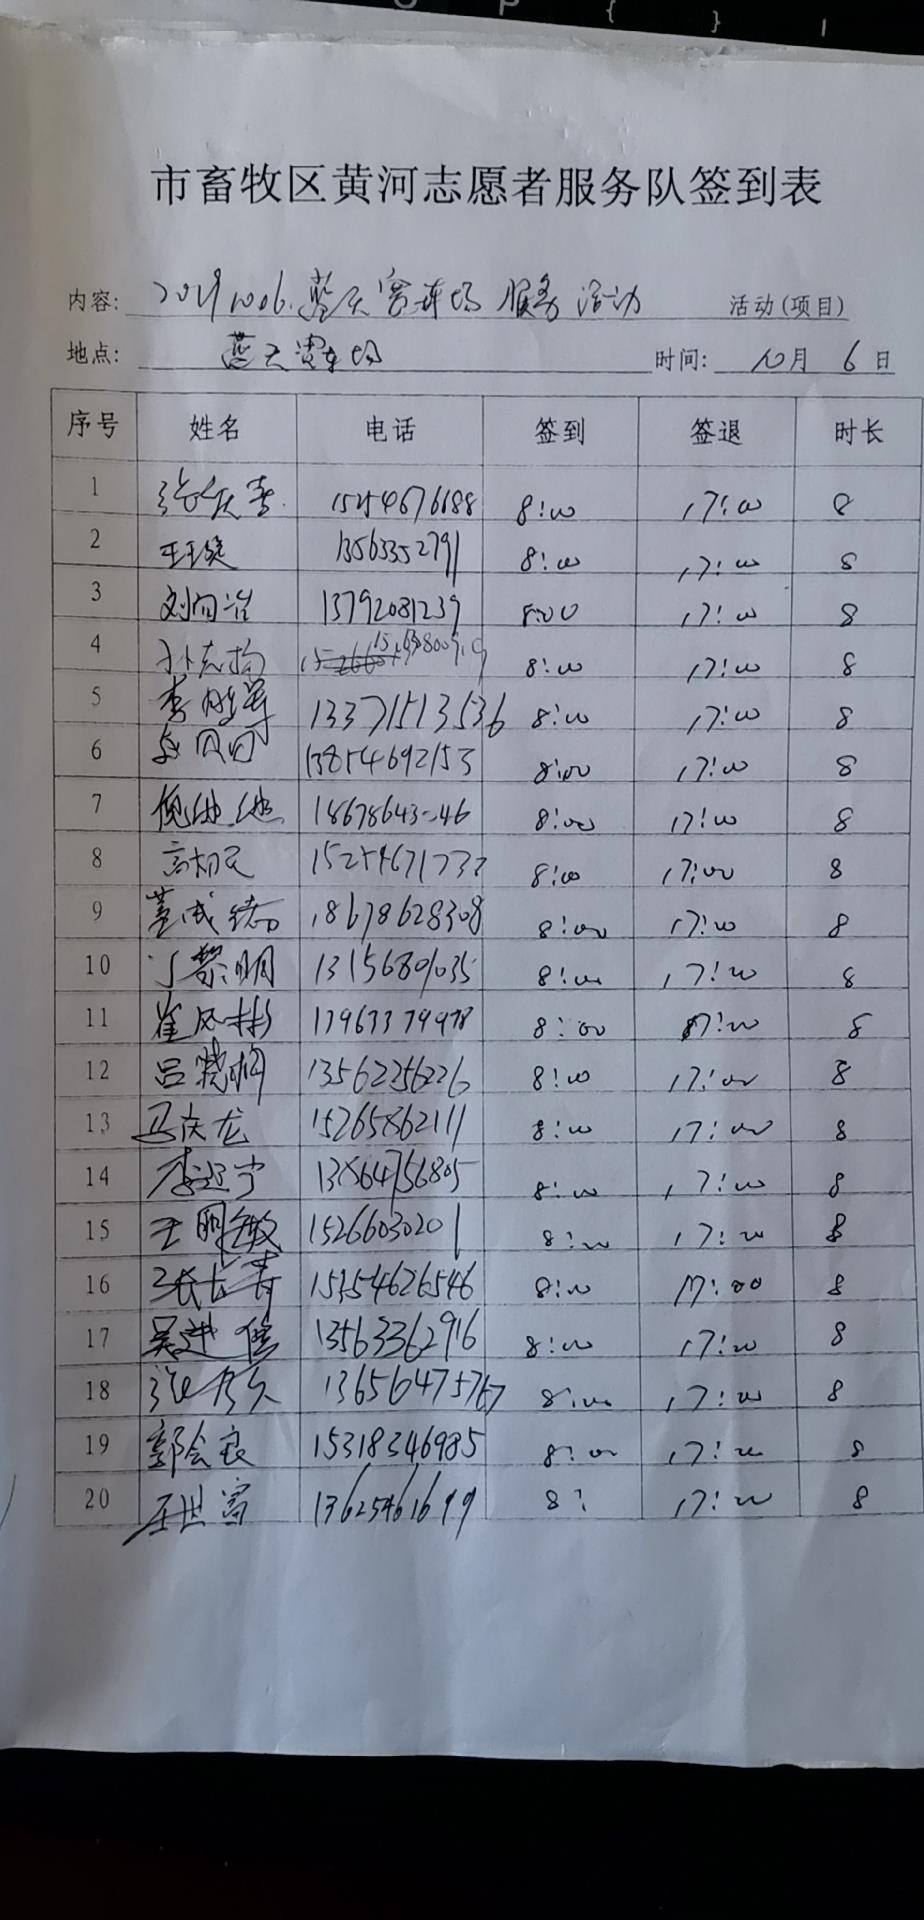 市畜牧区黄河志愿者服务队签到表
内容: 20191006.蓝天赛车场服务活动 活动(项目)
地点: 蓝天赛车场 时间: 10月6日
序号 姓名 电话 签到 签退 时长
1 15254676188 8:00 17:00 8
2 13563352791 8:00 17:00 8
3 13792081239 8:00 17:00 8
4 8:00 17:00 8
5 13371513536 8:00 17:00 8
6 13854692153 8:00 17:00 8
7 8:00 17:00 8
8 15254671733 8:00 17:00 8
9 18678628308 8:00 17:00 8
10 丁黎明 13156801035 8:00 17:00 8
11 崔风彬 8:00 17:00 8
12 吕晓梅 13562256226 8:00 17:00 8
13 马庆龙 15265862111 8:00 17:00 8
14 李辽宁 13864756805 8:00 17:00 8
15 王明敏 15266030201 8:00 17:00 8
16 张长青 15354626546 8:00 17:00 8
17 吴进信 13563362916 8:00 17:00 8
18 13656475767 8:00 17:00 8
19 郭会良 15318346985 8:00 17:00 8
20 王世富 13625461699 8: 17:00 8